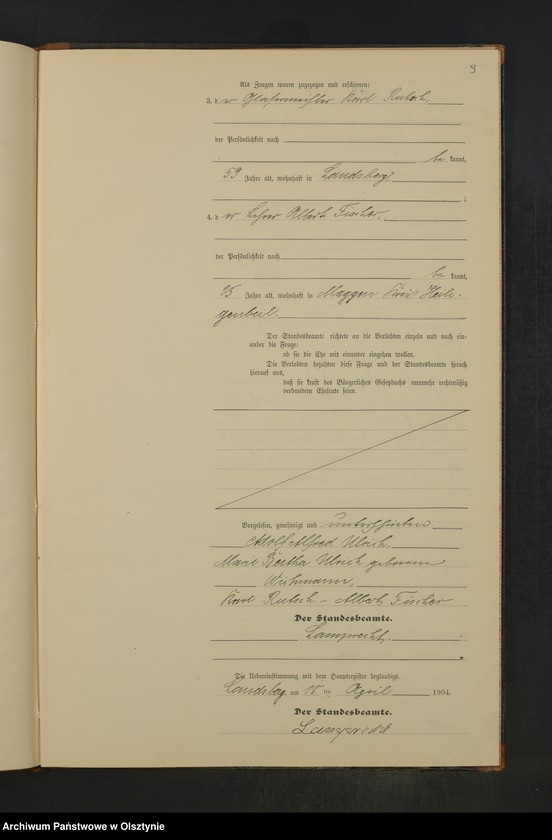 9
Als Zeugen waren zugezogen und erschienen:
3. der Glasermeister Karl Rutsch,
der Persönlichkeit nach
be kannt,
59 Jahre alt, wohnhaft in Landsberg,
;
4. der Lehrer Albert Fischer,
der Persönlichkeit nach
be kannt,
25 Jahre alt, wohnhaft in Maggen Kreis Heili-
genbeil.
Der Standesbeamte richtete an die Verlobten einzeln und nach ein-
ander die Frage:
ob sie die Ehe mit einander eingehen wollen.
Die Verlobten bejahten diese Frage und der Standesbeamte sprach
hierauf aus,
daß sie kraft des Bürgerlichen Gesetzbuchs nunmehr rechtmäßig
verbundene Eheleute seien.
Vorgelesen, genehmigt und unterschrieben
Adolf Alfred Ulrich,
Marie Bertha Ulrich geborene
Karl Rutsch – Albert Fischer
Der Standesbeamte.
Lamprecht.
Die Uebereinstimmung mit dem Hauptregister beglaubigt.
Landsberg, am ten April 1904.
Der Standesbeamte.
Lamprecht
Archiwum Państwowe w Olsztynie